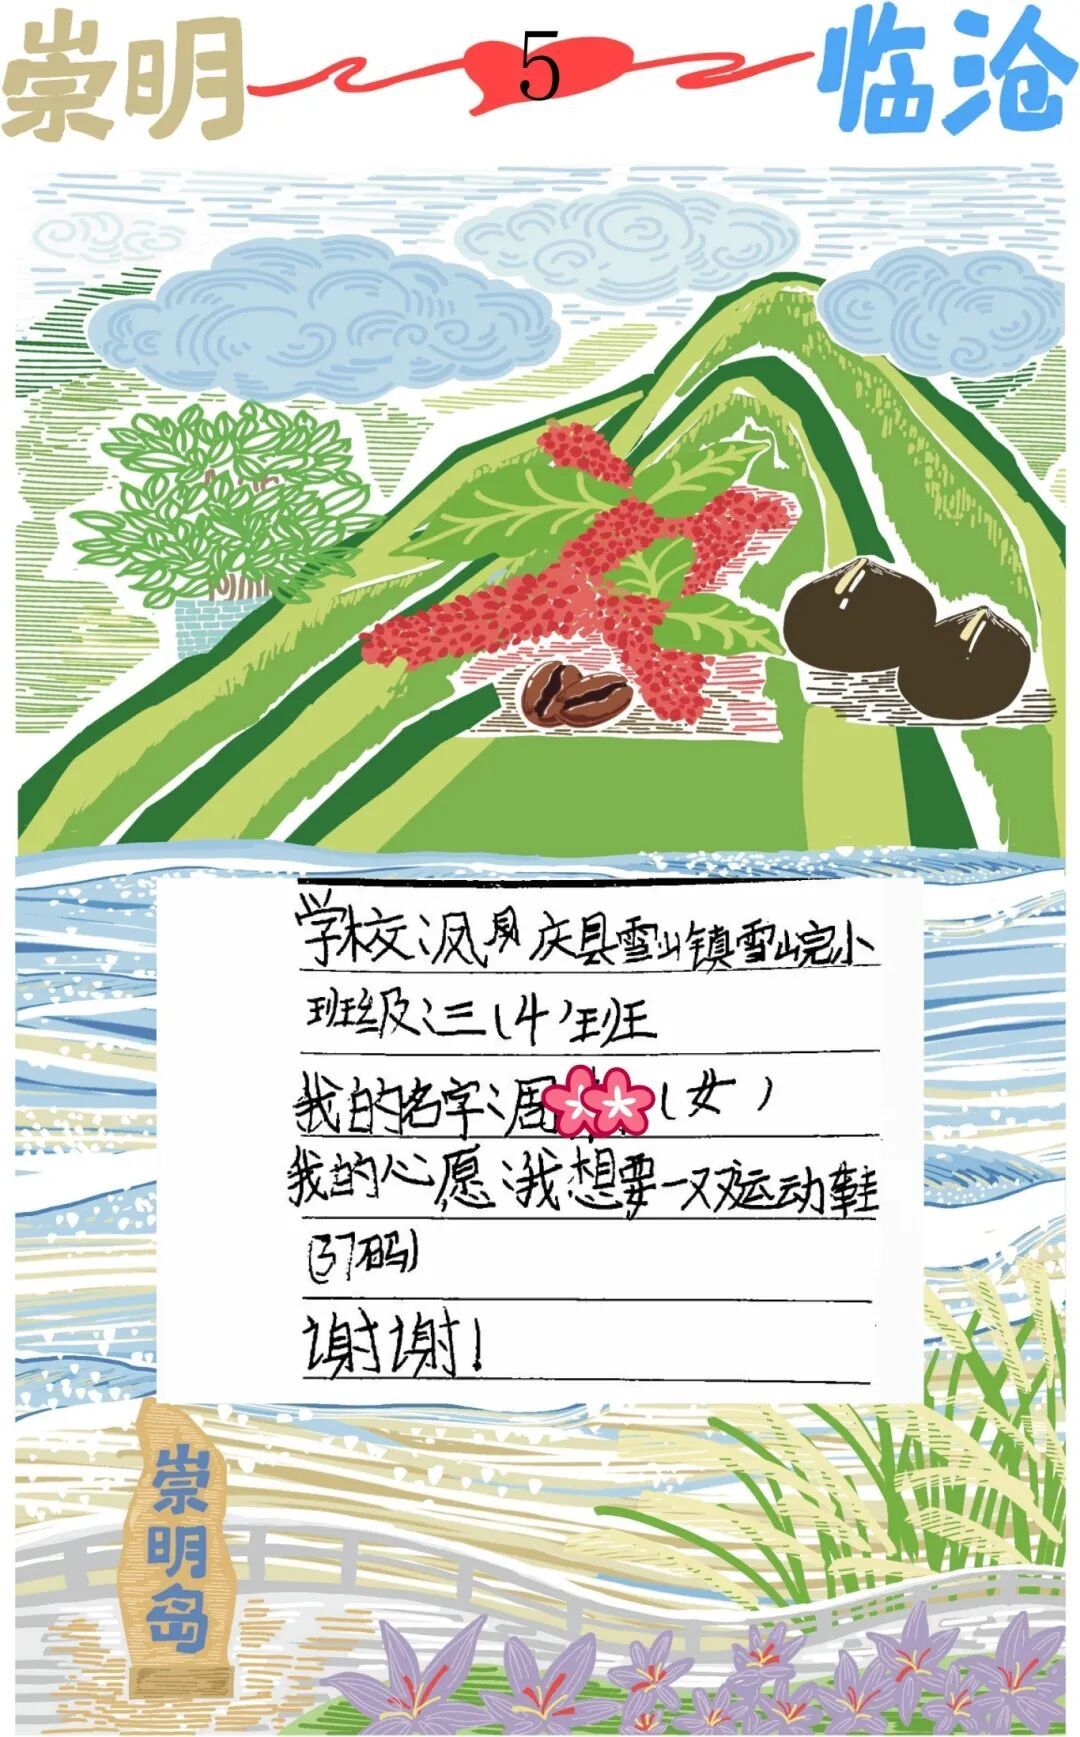 崇明 5 临沧
学校:凤庆县雪山镇雪山完小
班级:三(4)班
我的名字:周 (女)
我的心愿:我想要一双运动鞋
(37码)
谢谢!
崇明岛